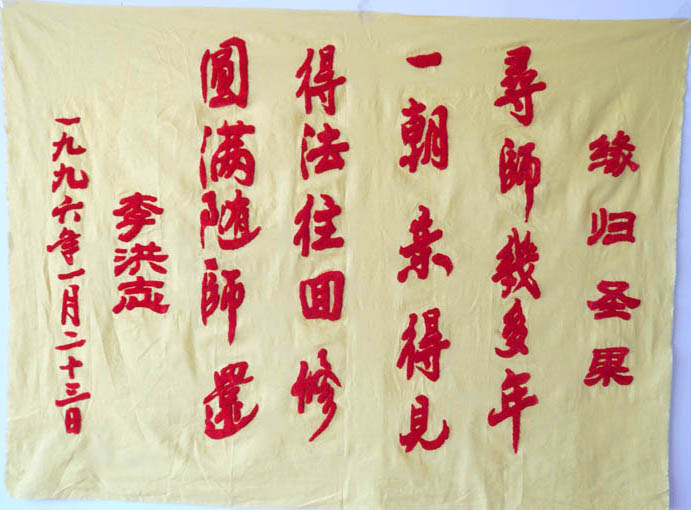 缘归圣果
尋師幾多年
一朝亲得見
得法往回修
圓满随師還
李洪志
一九九六年一月二十三日